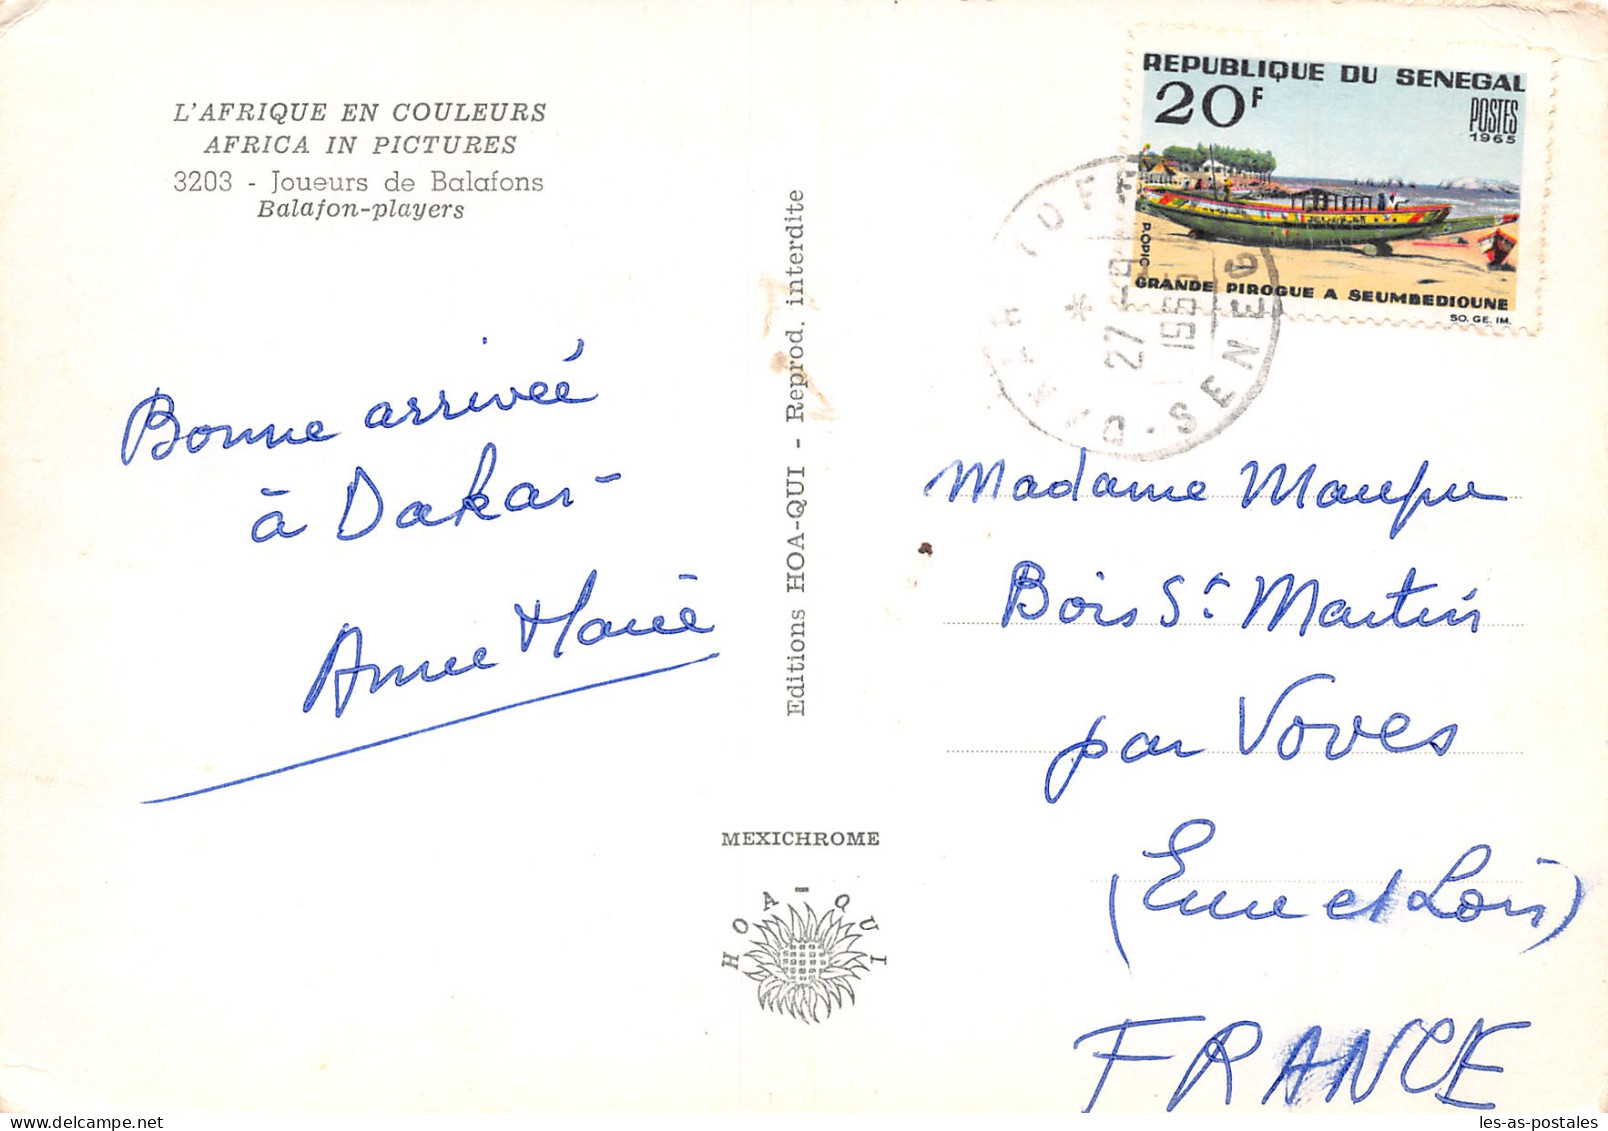 L'AFRIQUE EN COULEURS
AFRICA IN PICTURES
3203 - Joueurs de Balafons
Balafon-players
Bonne arrivée
à Dakar -
Anne Marie
Editions HOA-QUI - Reprod. interdite
MEXICHROME
HOA-QUI
REPUBLIQUE DU SENEGAL
20F
POSTES
1965
P.ODIC
GRANDE PIROGUE A SEUMBEDIOUNE
SO. GE. IM.
SENEG
Madame Maupu
Bois St Martin
par Voves
(Eure et Loir)
FRANCE
les-as-postales